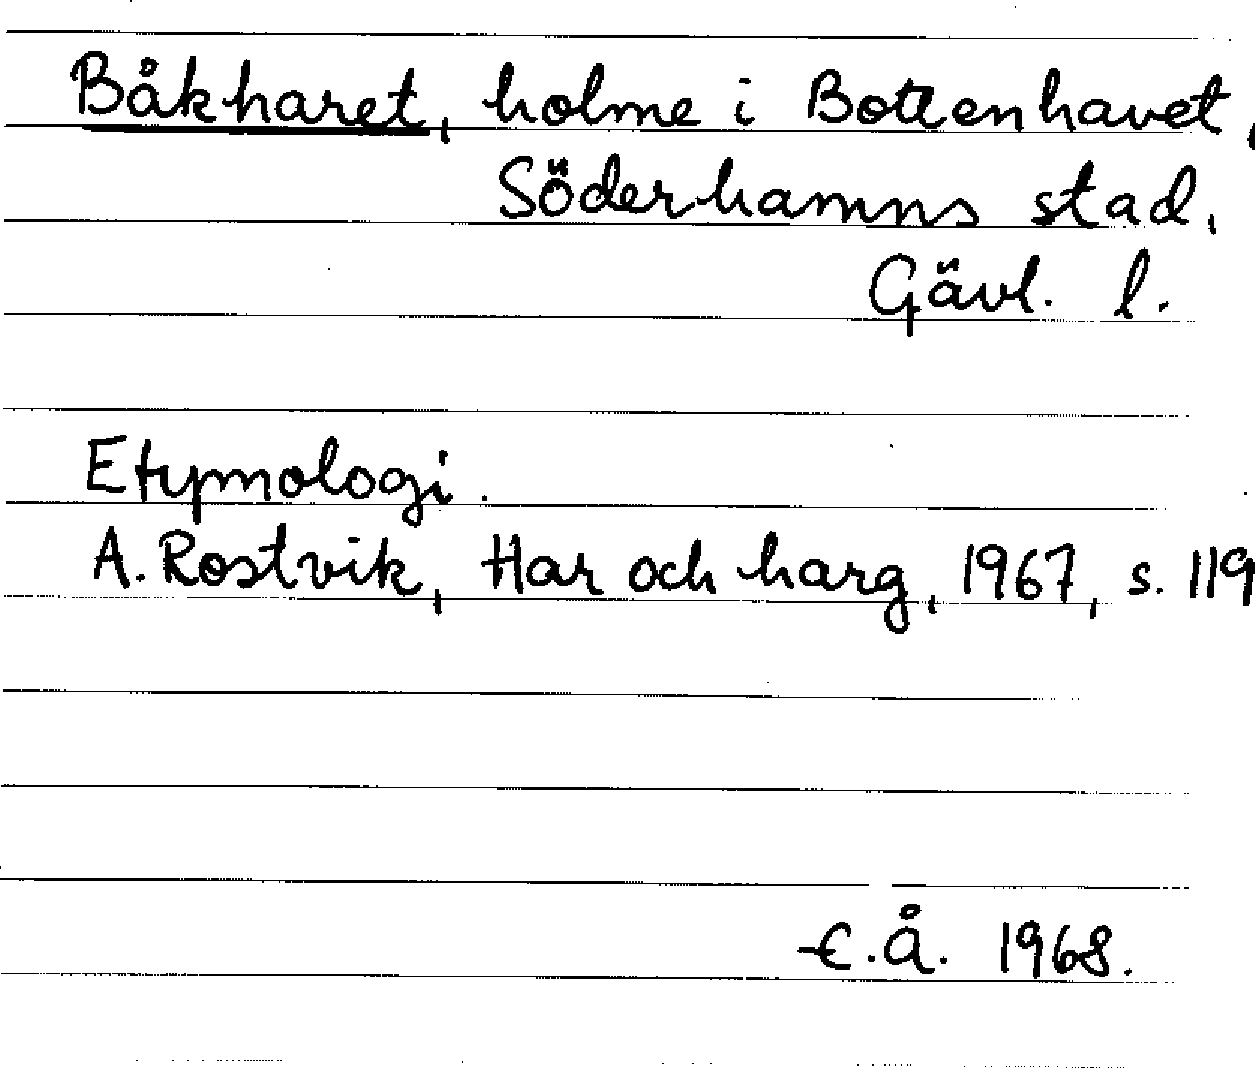 Båkharet, holme i Bottenhavet,
Söderhamns stad,
Gävl. l.
Etymologi.
A. Rostvik, Har och harg, 1967, s. 119
E.Å. 1968.